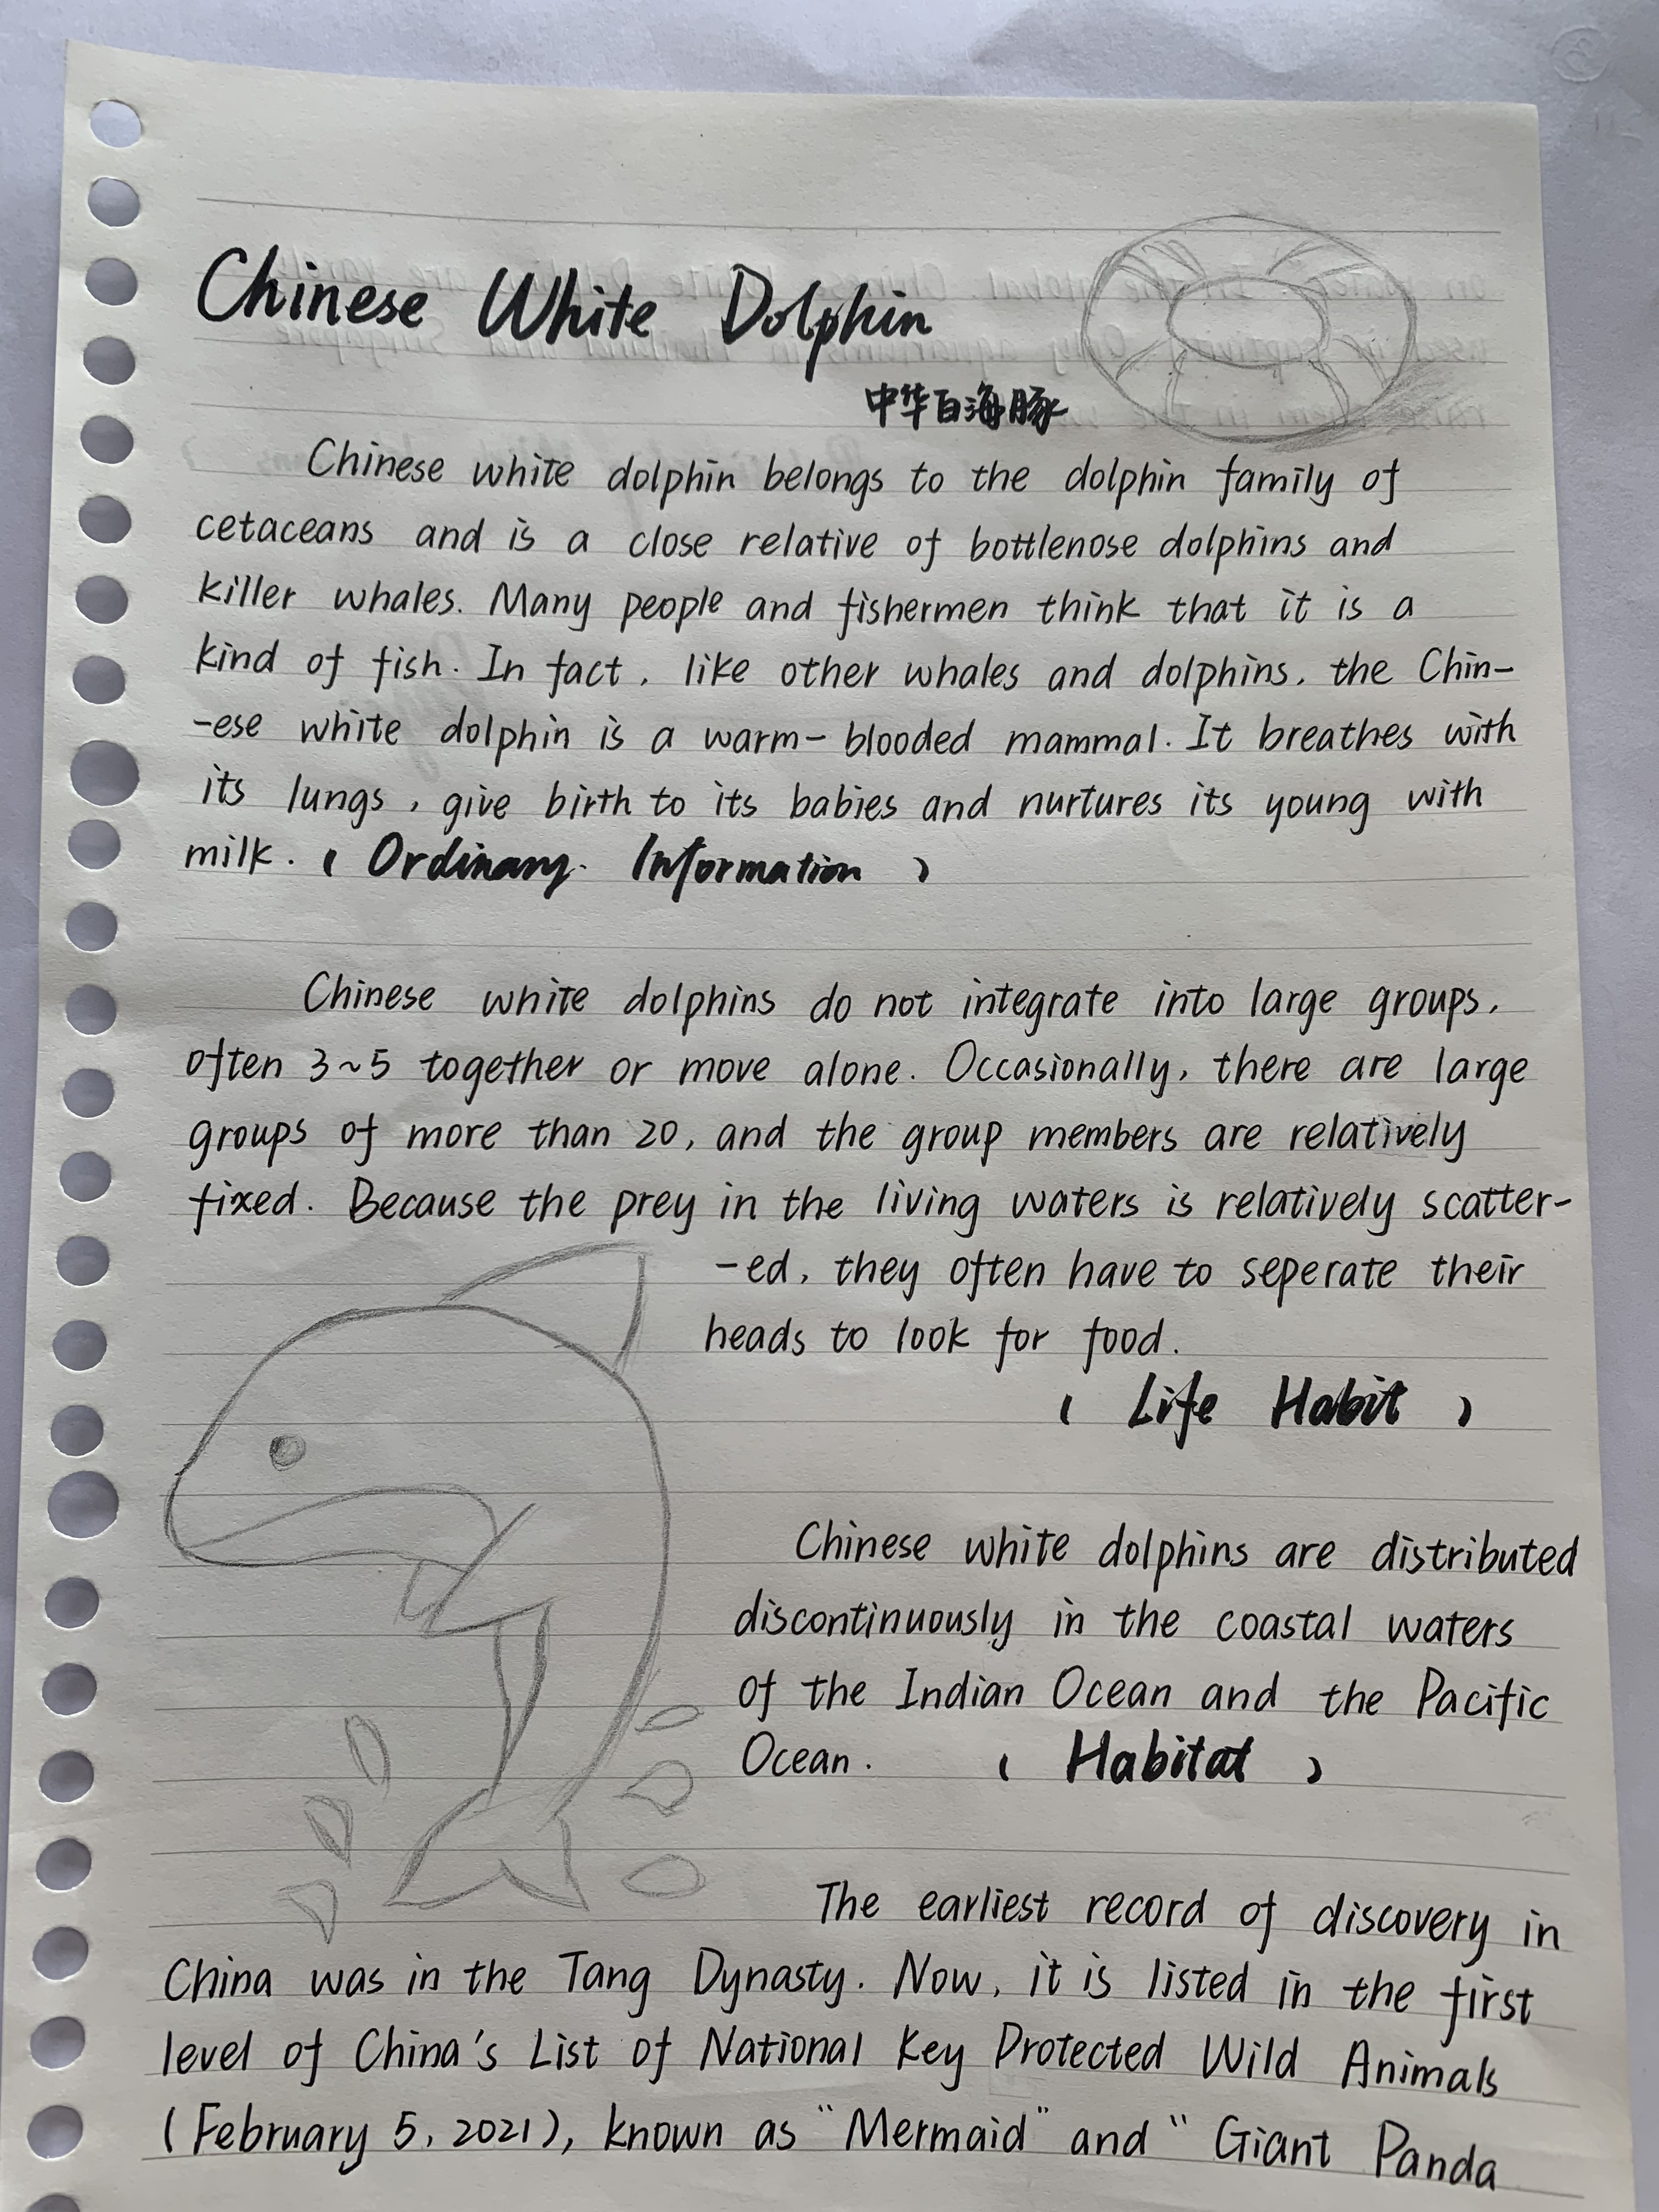 Chinese White Dolphin
中华白海豚
Chinese white dolphin belongs to the dolphin family of
cetaceans and is a close relative of bottlenose dolphins and
killer whales. Many people and fishermen think that it is a
kind of fish. In fact, like other whales and dolphins, the Chin-
-ese white dolphin is a warm-blooded mammal. It breathes with
its lungs, give birth to its babies and nurtures its young with
milk. (Ordinary Information)
Chinese white dolphins do not integrate into large groups,
often 3~5 together or move alone. Occasionally, there are large
groups of more than 20, and the group members are relatively
fixed. Because the prey in the living waters is relatively scatter-
-ed, they often have to seperate their
heads to look for food.
(Life Habit)
Chinese white dolphins are distributed
discontinuously in the coastal waters
of the Indian Ocean and the Pacific
Ocean. (Habitat)
The earliest record of discovery in
China was in the Tang Dynasty. Now, it is listed in the first
level of China's List of National Key Protected Wild Animals
(February 5, 2021), known as "Mermaid" and "Giant Panda